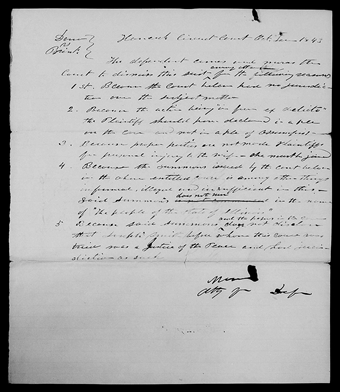 Hancock Circuit Court Oct Term 1843
vs
The defendant comes and moves the
Court to dismiss this suit for the following reasons
1st. Because the Court below had no jurisdic-
tion over the subject matter
2. Because the action being in form ex delicto
the Plaintiff should have declared in a plea
on the case and not in a plea of
3. Because proper parties are not made Plaintiffs
for personal injury to the wife she must be joined
4. Because the summons issued by the court below
in the above entitled case is among other things
informal, illegal and insufficient in this
Said Summons does not run in the name
of "the people of the State of Illinois"
5 Because said Summons does not
that before whom this cause was
was a Justice of the Peace and had juris-
diction as such
Atty for Deft